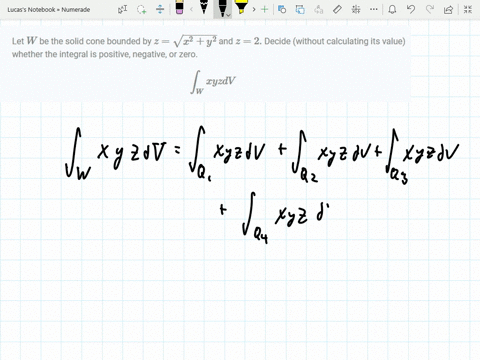 Lucas's Notebook • Numerade
Let W be the solid cone bounded by z = √(x² + y²) and z = 2. Decide (without calculating its value)
whether the integral is positive, negative, or zero.
∫_W xyzdV
∫_W x y z dV = ∫_Q₁ xyz dV + ∫_Q₂ xyz dV + ∫_Q₃ xyz dV
+ ∫_Q₄ xyz d